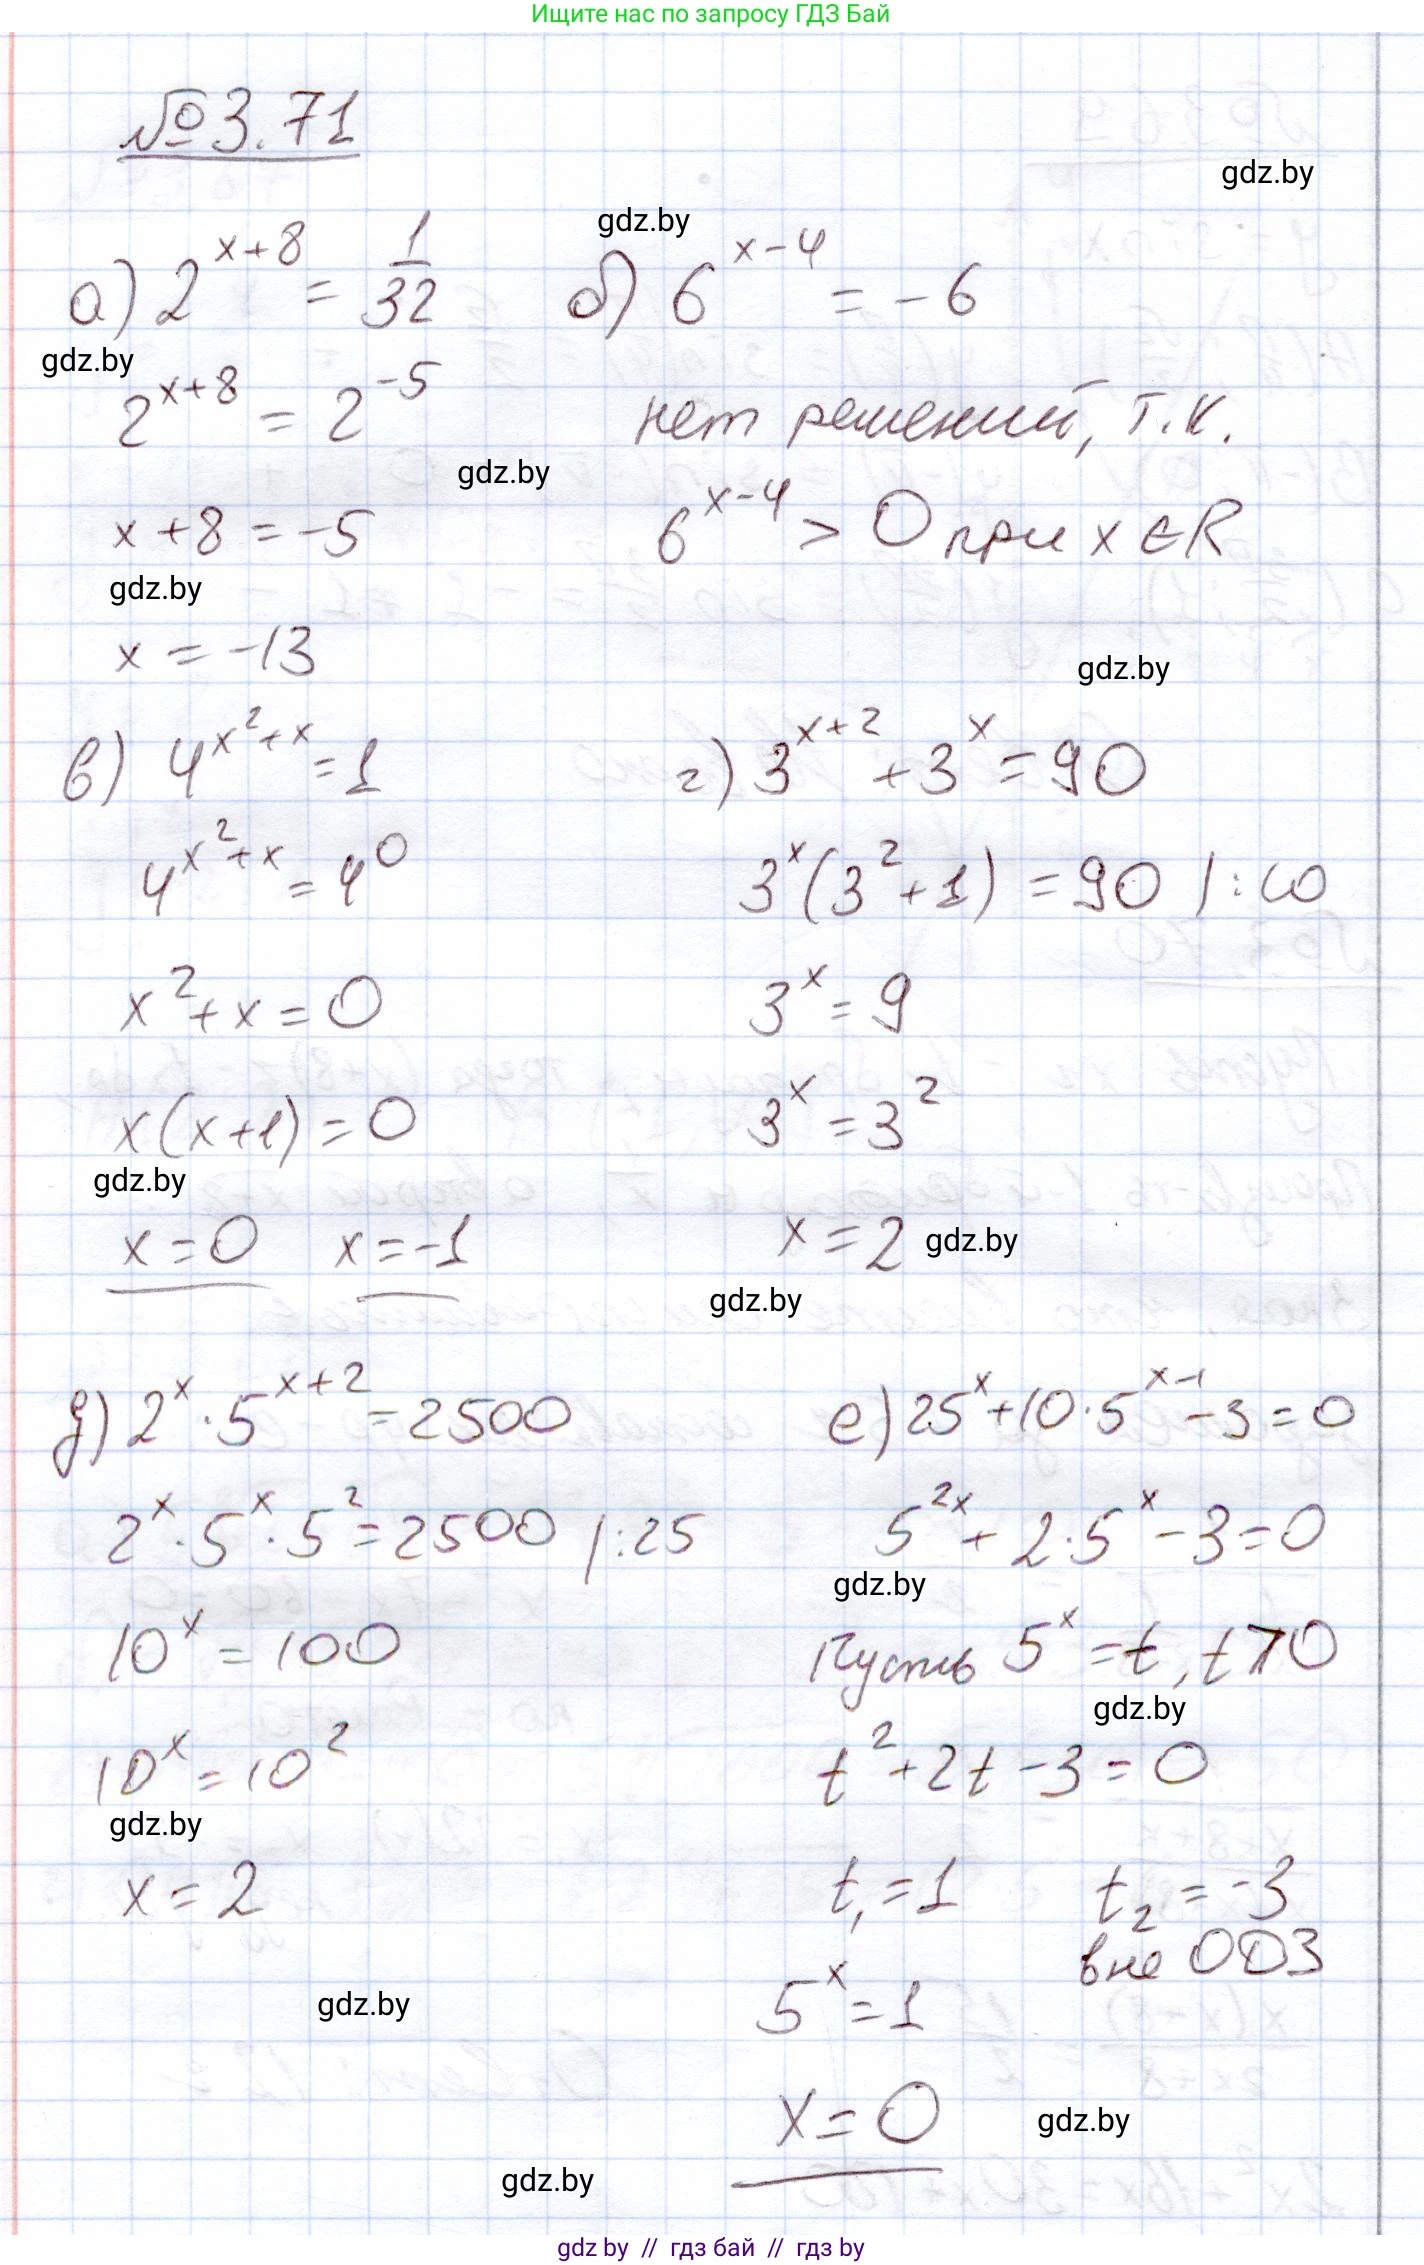 Ищите нас по запросу ГДЗ Бай
№3.71
gdz.by
gdz.by
а) 2^{x+8} = 1/32
gdz.by
2^{x+8} = 2^{-5}
gdz.by
x+8=-5
gdz.by
x=-13
б) 6^{x-4} = -6
нет решений, т.к.
6^{x-4} > 0 при x∈R
gdz.by
в) 4^{x²+x} = 1
4^{x²+x} = 4^0
x²+x=0
x(x+1)=0
gdz.by
x=0 x=-1
г) 3^{x+2}+3^x=90
3^x(3²+1)=90 |:10
3^x=9
3^x=3²
x=2 gdz.by
gdz.by
д) 2^x·5^{x+2}=2500
2^x·5^x·5²=2500 |:25
10^x=100
10^x=10²
gdz.by
x=2
gdz.by
е) 25^x+10·5^{x-1}-3=0
5^{2x}+2·5^x-3=0
gdz.by
Пусть 5^x=t, t>0
gdz.by
t²+2t-3=0
t₁=1 t₂=-3
вне ОДЗ
5^x=1
x=0
gdz.by
gdz.by
gdz by // гдз бай // гдз by